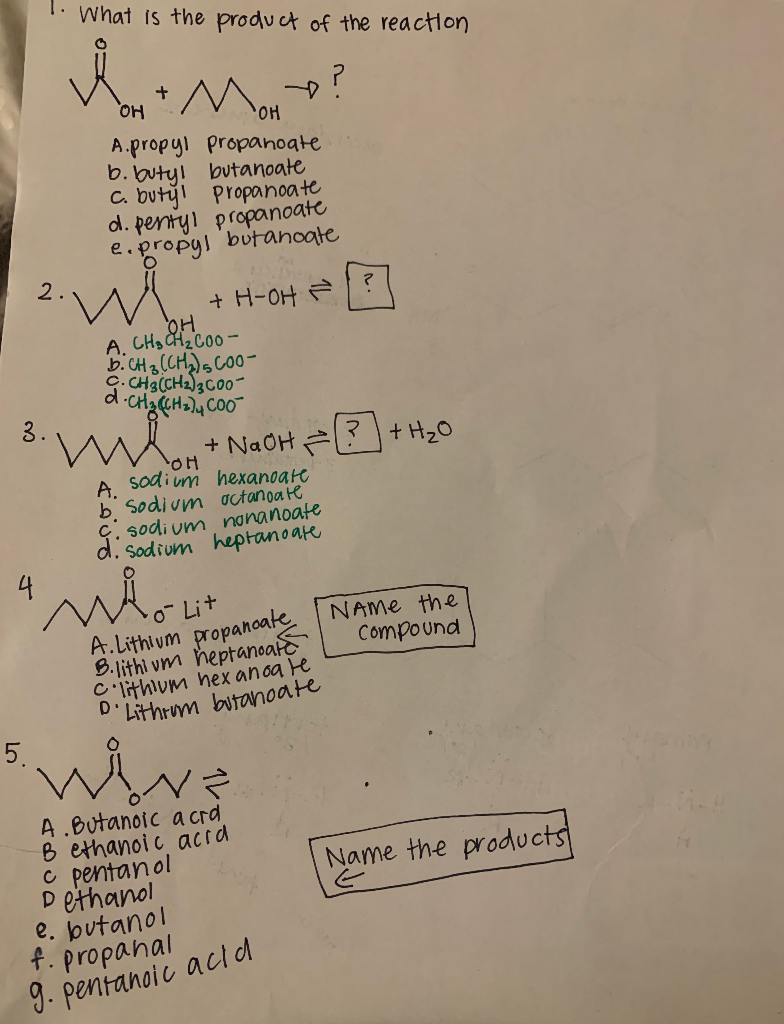 1. What is the product of the reaction
O
OH + OH → ?
A. propyl propanoate
b. butyl butanoate
c. butyl propanoate
d. pentyl propanoate
e. propyl butanoate
O
2. OH + H-OH ⇌ ?
A. CH3CH2COO-
b. CH3(CH2)5COO-
c. CH3(CH2)3COO-
d. CH3(CH2)4COO-
O
3. OH + NaOH ⇌ ? + H2O
A. sodium hexanoate
b. sodium octanoate
c. sodium nonanoate
d. sodium heptanoate
4
O
O- Li+
NAME the
compound
A. Lithium propanoate
B. lithium heptanoate
C. lithium hexanoate
D. Lithium butanoate
5.
O
O ⇌
A. Butanoic acid
B ethanoic acid
C pentanol
D ethanol
e. butanol
f. propanal
g. pentanoic acid
Name the products
←